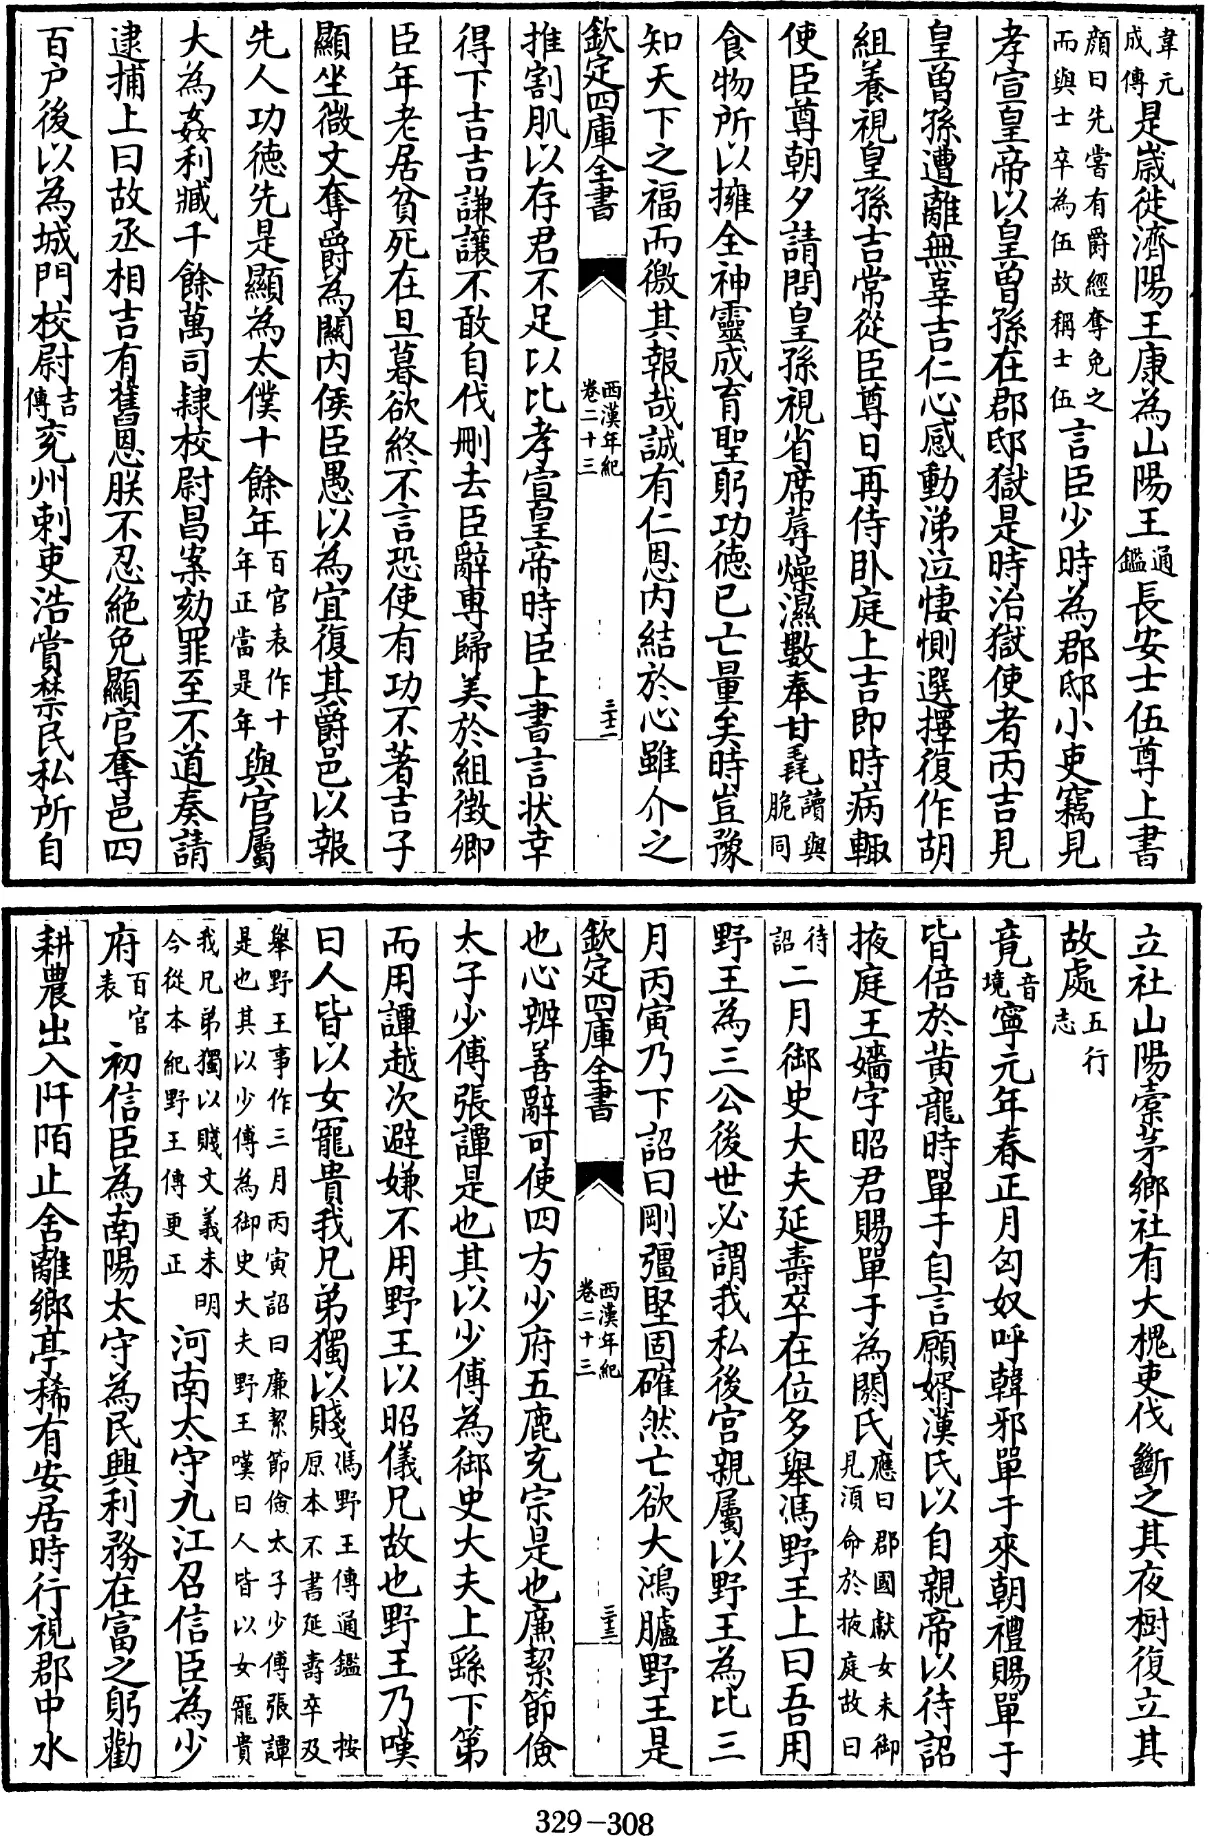 韋元成傳是歲徙濟陽王康為山陽王通鑑長安士伍尊上書
顔曰先嘗有爵經奪免之而與士卒為伍故稱士伍言臣少時為郡邸小吏竊見
孝宣皇帝以皇曽孫在郡邸獄是時治獄使者丙吉見
皇曽孫遭離無辜吉仁心感動涕泣悽惻選擇復作胡
組養視皇孫吉常從臣尊日再侍卧庭上吉即時病輙
使臣尊朝夕請問皇孫視省席蓐燥濕數奉甘毳讀與脆同
食物所以擁全神靈成育聖躬功徳已亡量矣時豈豫
知天下之福而徼其報哉誠有仁恩内結於心雖介之
欽定四庫全書 西漢年紀卷二十三 三十二
推割肌以存君不足以比孝宣皇帝時臣上書言状幸
得下吉吉謙讓不敢自伐刪去臣辭専歸美於組徴卿
臣年老居貧死在旦暮欲終不言恐使有功不著吉子
顯坐㣲文奪爵為關内侯臣愚以為宜復其爵邑以報
先人功徳先是顯為太僕十餘年百官表作十年正當是年與官屬
大為姦利臧千餘萬司隷校尉昌案劾罪至不道奏請
逮捕上曰故丞相吉有舊恩朕不忍絶免顯官奪邑四
百户後以為城門校尉吉傳兖州刺吏浩賞禁民私所自
立社山陽橐茅鄉社有大槐吏伐斷之其夜樹復立其
故處五行志
竟音境寧元年春正月匈奴呼韓邪單于來朝禮賜單于
皆倍於黄龍時單于自言願婿漢氏以自親帝以待詔
掖庭王嬙字昭君賜單于為閼氏應曰郡國獻女未御見湏命於掖庭故曰
待詔二月御史大夫延壽卒在位多舉馮野王上曰吾用
野王為三公後世必謂我私後宫親屬以野王為比三
月丙寅乃下詔曰剛彊堅固確然亡欲大鴻臚野王是
欽定四庫全書 西漢年紀卷二十三 三十三
也心辨善辭可使四方少府五鹿充宗是也廉絜節儉
太子少傅張譚是也其以少傅為御史大夫上繇下第
而用譚越次避嫌不用野王以昭儀兄故也野王乃嘆
曰人皆以女寵貴我兄弟獨以賤馮野王傳通鑑 按原本不書延壽卒及
舉野王事作三月丙寅詔曰廉絜節儉太子少傅張譚是也其以少傅為御史大夫野王嘆曰人皆以女寵貴
我兄弟獨以賤文義未明今從本紀野王傳更正河南太守九江召信臣為少
府百官表初信臣為南陽太守為民興利務在富之躬勸
耕農出入阡陌止舍離鄉亭稀有安居時行視郡中水
329-308